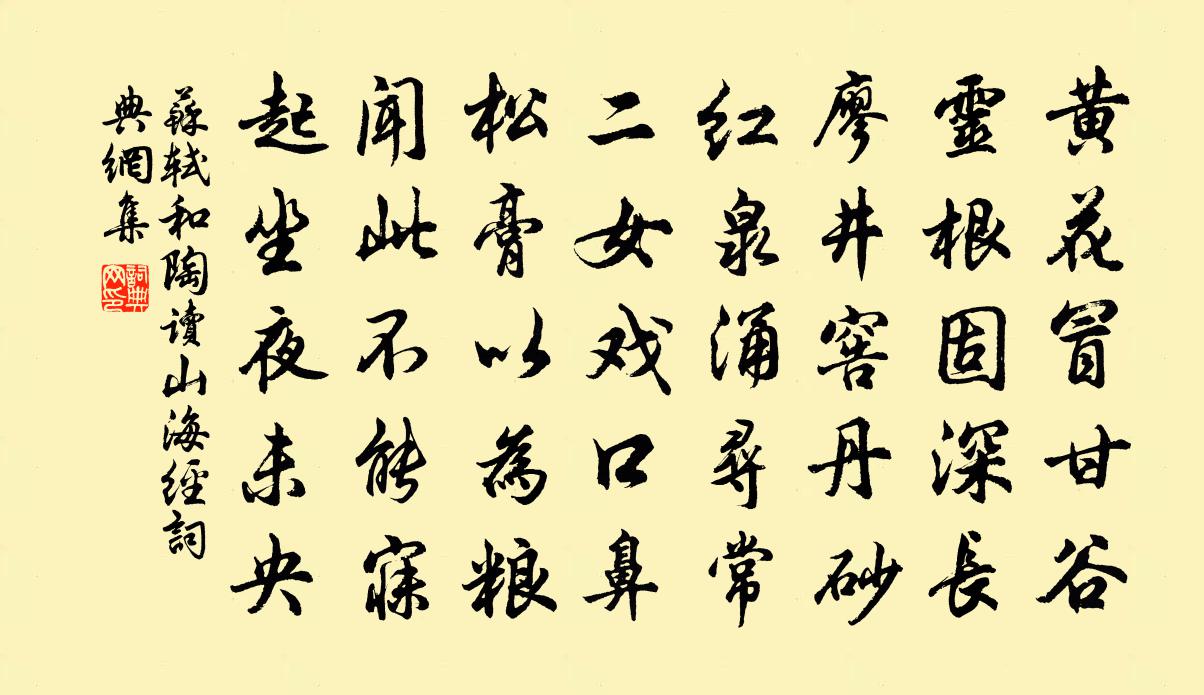 黄花冒甘谷
靈根固深長
廖井窖丹砂
红泉涌尋常
二女戏口鼻
松膏以為粮
闻此不能寐
起坐夜未央
蘇軾和陶讀山海經詞
典網集
詞典
网印